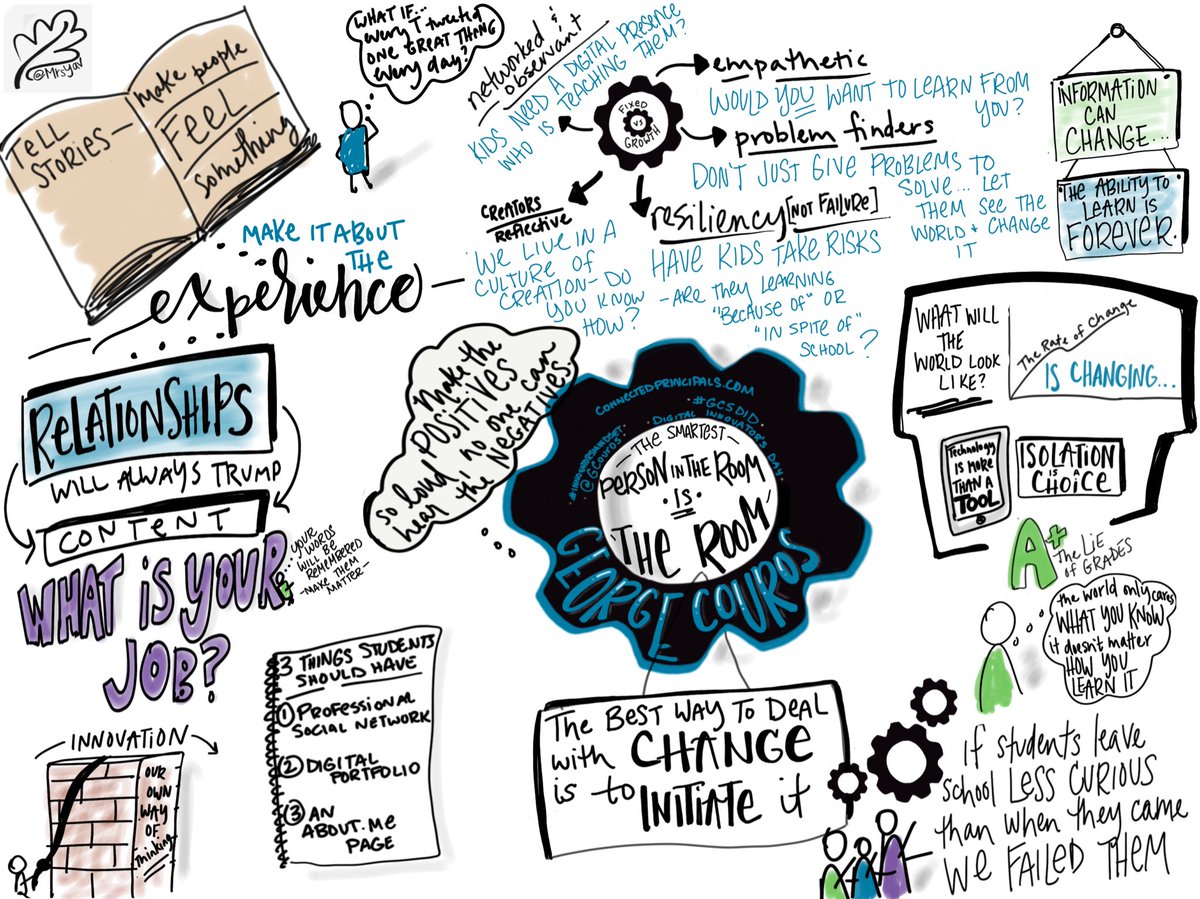 @Mrsyav
TELL
STORIES—
make people
FEEL
something
WHAT IF...
every 1 tweeted
ONE GREAT THING
every day?
networked &
observant
KIDS NEED A DIGITAL PRESENCE
WHO IS TEACHING THEM?
FIXED
vs
GROWTH
empathetic
WOULD YOU WANT TO LEARN FROM
YOU?
problem finders
DON'T JUST GIVE PROBLEMS TO
SOLVE... LET
THEM SEE THE
WORLD & CHANGE
IT
resiliency [NOT FAILURE]
HAVE KIDS TAKE RISKS
-ARE THEY LEARNING
"BECAUSE OF" OR
"IN SPITE OF"
SCHOOL?
CREATORS
Reflective
WE LIVE IN A
CULTURE OF
CREATION- DO
YOU KNOW
HOW?
INFORMATION
CAN
CHANGE...
THE ABILITY TO
LEARN IS
FOREVER.
MAKE IT ABOUT
THE
experience
RELATIONSHIPS
WILL ALWAYS TRUMP
CONTENT
Make the
POSITIVES
so loud no one can
hear the NEGATIVES.
WHAT WILL
THE
WORLD LOOK
LIKE?
The Rate of Change
IS CHANGING...
Technology
IS MORE
THAN A
TOOL
ISOLATION
IS A
CHOICE
CONNECTEDPRINCIPALS.COM
#GCSDID
DIGITAL INNOVATOR'S DAY
@GCOUROS
#INNOVATORSMINDSET
—THE SMARTEST—
PERSON IN THE ROOM
IS
'THE ROOM'
GEORGE COUROS
WHAT IS YOUR
JOB?
...YOUR
WORDS
WILL BE
REMEMBERED
-MAKE THEM
MATTER-
A+
THE LIE
OF GRADES
the world only cares
WHAT YOU KNOW
it doesn't matter
HOW YOU
LEARN IT
3 THINGS STUDENTS
SHOULD HAVE
① PROFESSIONAL
SOCIAL NETWORK
② DIGITAL
PORTFOLIO
③ AN
ABOUT.ME
PAGE
The BEST WAY TO DEAL
with CHANGE
is to INITIATE it
INNOVATION
OUR
OWN
WAY
OF
thinking
if students leave
school LESS CURIOUS
than when they came
WE FAILED THEM